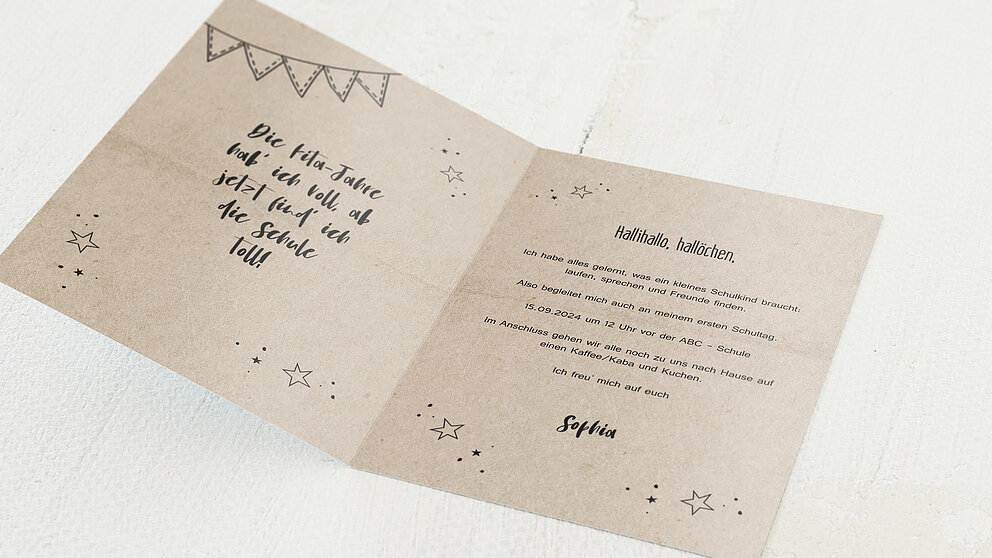 Die Kita-Jahre
hab' ich voll, ab
jetzt find' ich
die Schule
toll!
Hallihallo, hallöchen,
Ich habe alles gelernt, was ein kleines Schulkind braucht:
laufen, sprechen und Freunde finden.
Also begleitet mich auch an meinem ersten Schultag.
15.09.2024 um 12 Uhr vor der ABC - Schule
Im Anschluss gehen wir alle noch zu uns nach Hause auf
einen Kaffee/Kaba und Kuchen.
Ich freu' mich auf euch
Sophia